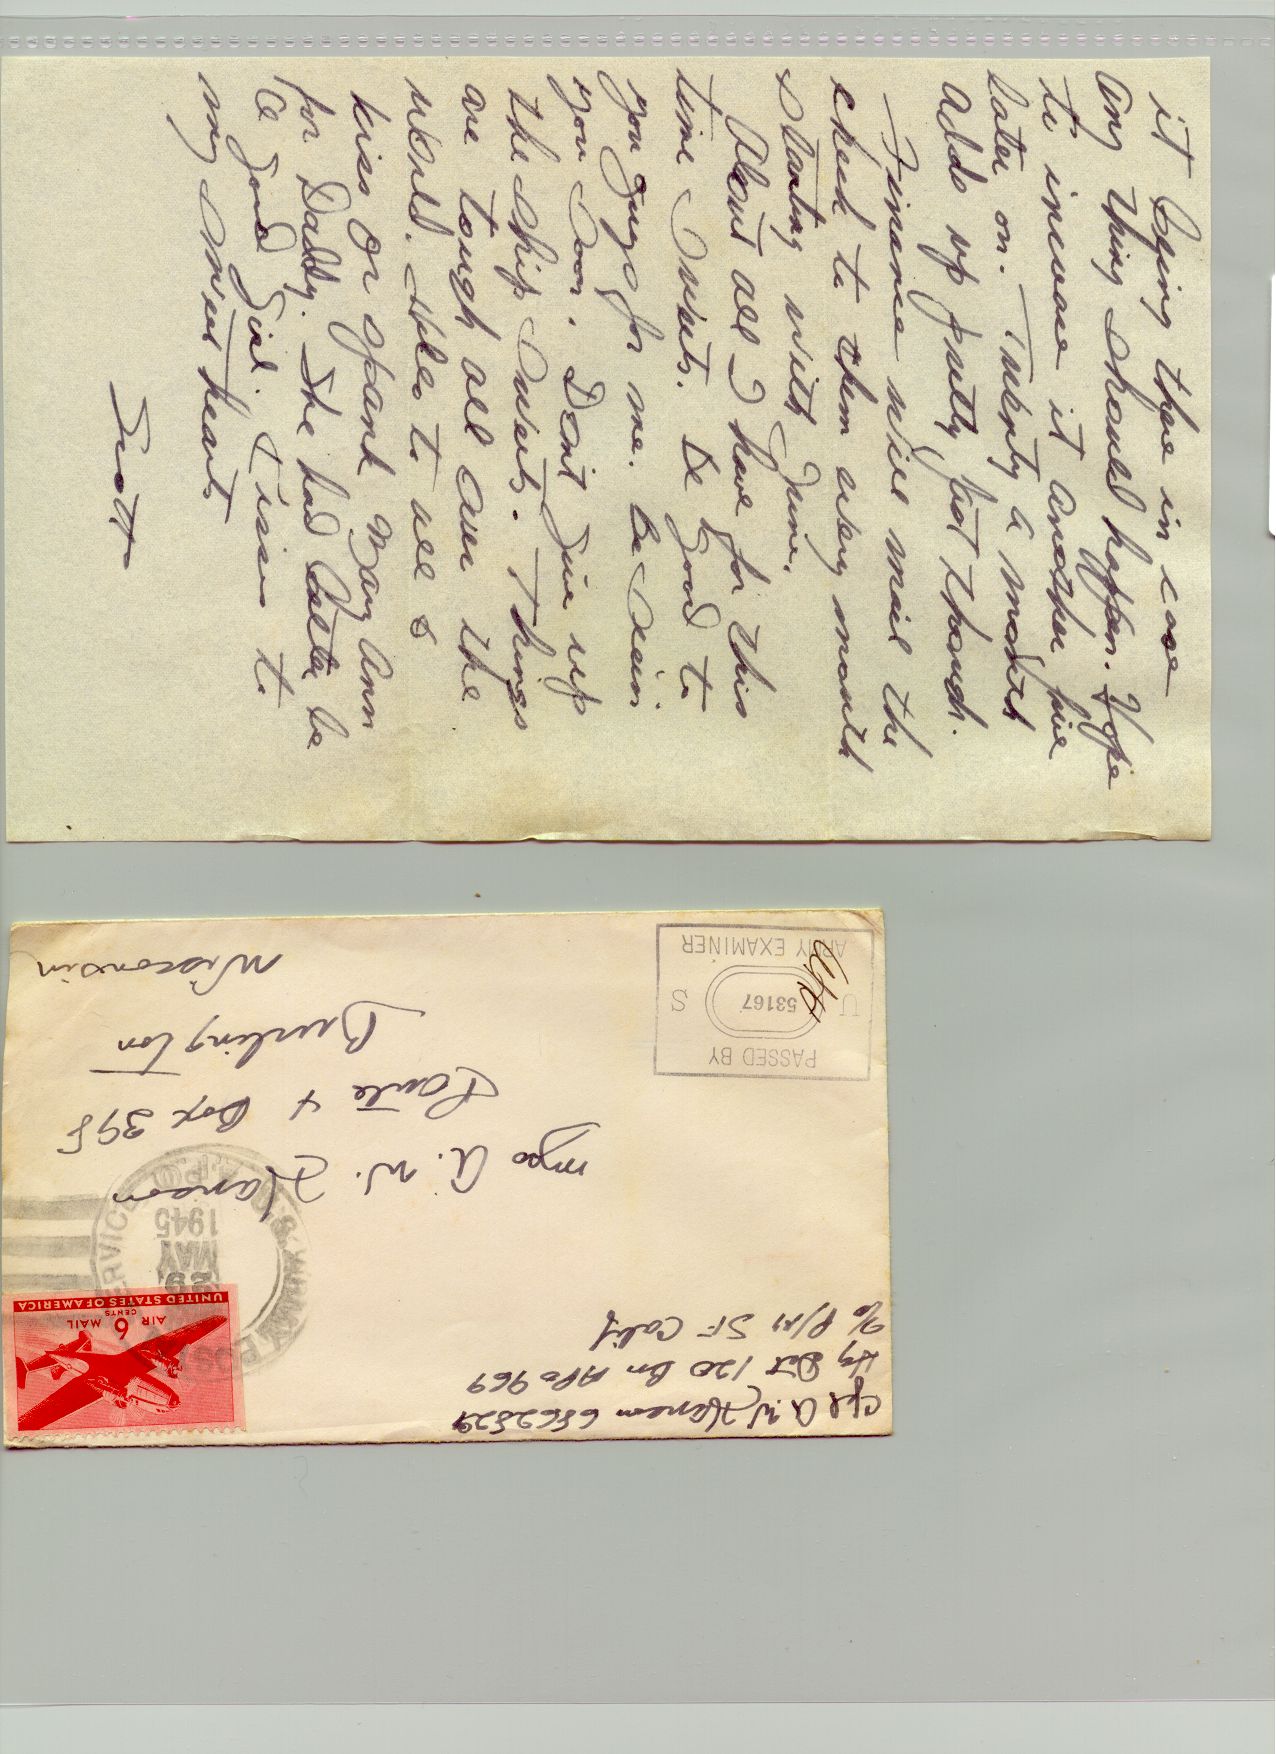 it being there in case
any thing should happen. Hope
to increase it another five
later on. Twenty a month
adds up pretty fast though.
Finance will mail the
check to them every month
starting with June.
About all I have for this
time Sweets. Be good to
you guys for me. Be seein
you soon. Don't give up
the ship Sweets. Things
are tough all over the
world. Hello to all &
kiss or spank Mary Ann
for Daddy. She had better be
a good girl. Kisses to
my Sweet hearts
Scott
Cpl A. W. Hanson 6862829
Hq Det 120 Bn APO 969
c/o P/M SF Calif
UNITED STATES OF AMERICA
CENTS
AIR 6 MAIL
U.S. ARMY POSTAL SERVICE A.P.O.
29
MAY
1945
Mrs A. W. Hanson
Route 4 Box 398
Burlington
Wisconsin
PASSED BY
U 53167 S
ARMY EXAMINER